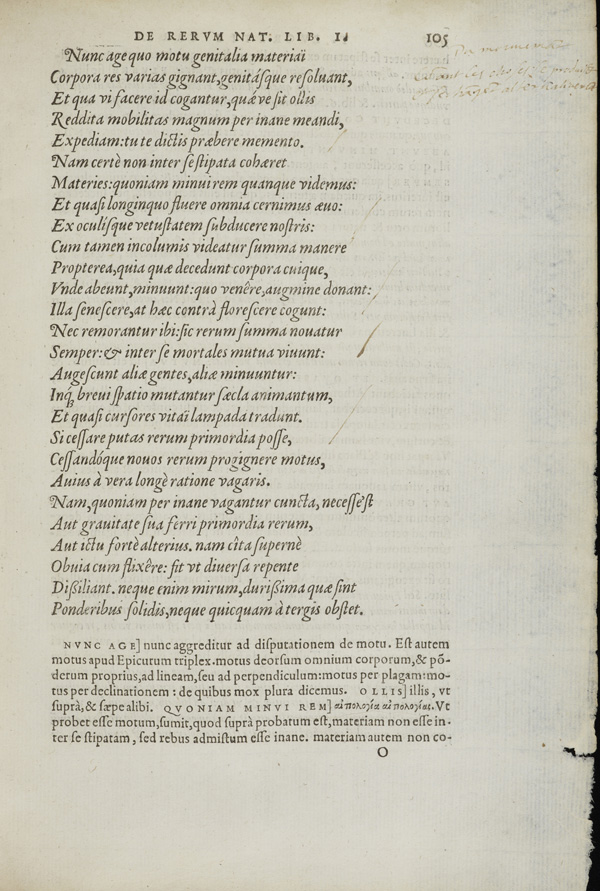 DE RERVM NAT. LIB. II. 105
Nunc age quo motu genitalia materiaï
Corpora res varias gignant, genitásque resoluant,
Et qua vi facere id cogantur, quæve sit ollis
Reddita mobilitas magnum per inane meandi,
Expediam: tu te dictis præbere memento.
Nam certè non inter se stipata cohæret
Materies: quoniam minui rem quanque videmus:
Et quasi longinquo fluere omnia cernimus æuo:
Ex oculísque vetustatem subducere nostris:
Cum tamen incolumis videatur summa manere
Propterea, quia quæ decedunt corpora cuique,
Vnde abeunt, minuunt: quo venêre, augmine donant:
Illa senescere, at hæc contrà florescere cogunt:
Nec remorantur ibi: sic rerum summa nouatur
Semper: & inter se mortales mutua viuunt:
Augescunt aliæ gentes, aliæ minuuntur:
Inq; breui spatio mutantur sæcla animantum,
Et quasi cursores vitaï lampada tradunt.
Si cessare putas rerum primordia posse,
Cessandóque nouos rerum progignere motus,
Auius à vera longè ratione vagaris.
Nam, quoniam per inane vagantur cuncta, necesse'st
Aut grauitate sua ferri primordia rerum,
Aut ictu fortè alterius. nam cîta supernè
Obuia cum flixêre: fit vt diuersa repente
Dißiliant. neque enim mirum, durißima quæ sint
Ponderibus solidis, neque quicquam à tergis obstet.
NVNC AGE] nunc aggreditur ad disputationem de motu. Est autem
motus apud Epicurum triplex. motus deorsum omnium corporum, & pō-
derum proprius, ad lineam, seu ad perpendiculum: motus per plagam: mo-
tus per declinationem: de quibus mox plura dicemus. OLLIS] illis, vt
suprà, & sæpe alibi. QVONIAM MINVI REM] αἰτιολογία αἰτιολογίας. Vt
probet esse motum, sumit, quod suprà probatum est, materiam non esse in-
ter se stipatam, sed rebus admistum esse inane. materiam autem non co-
O